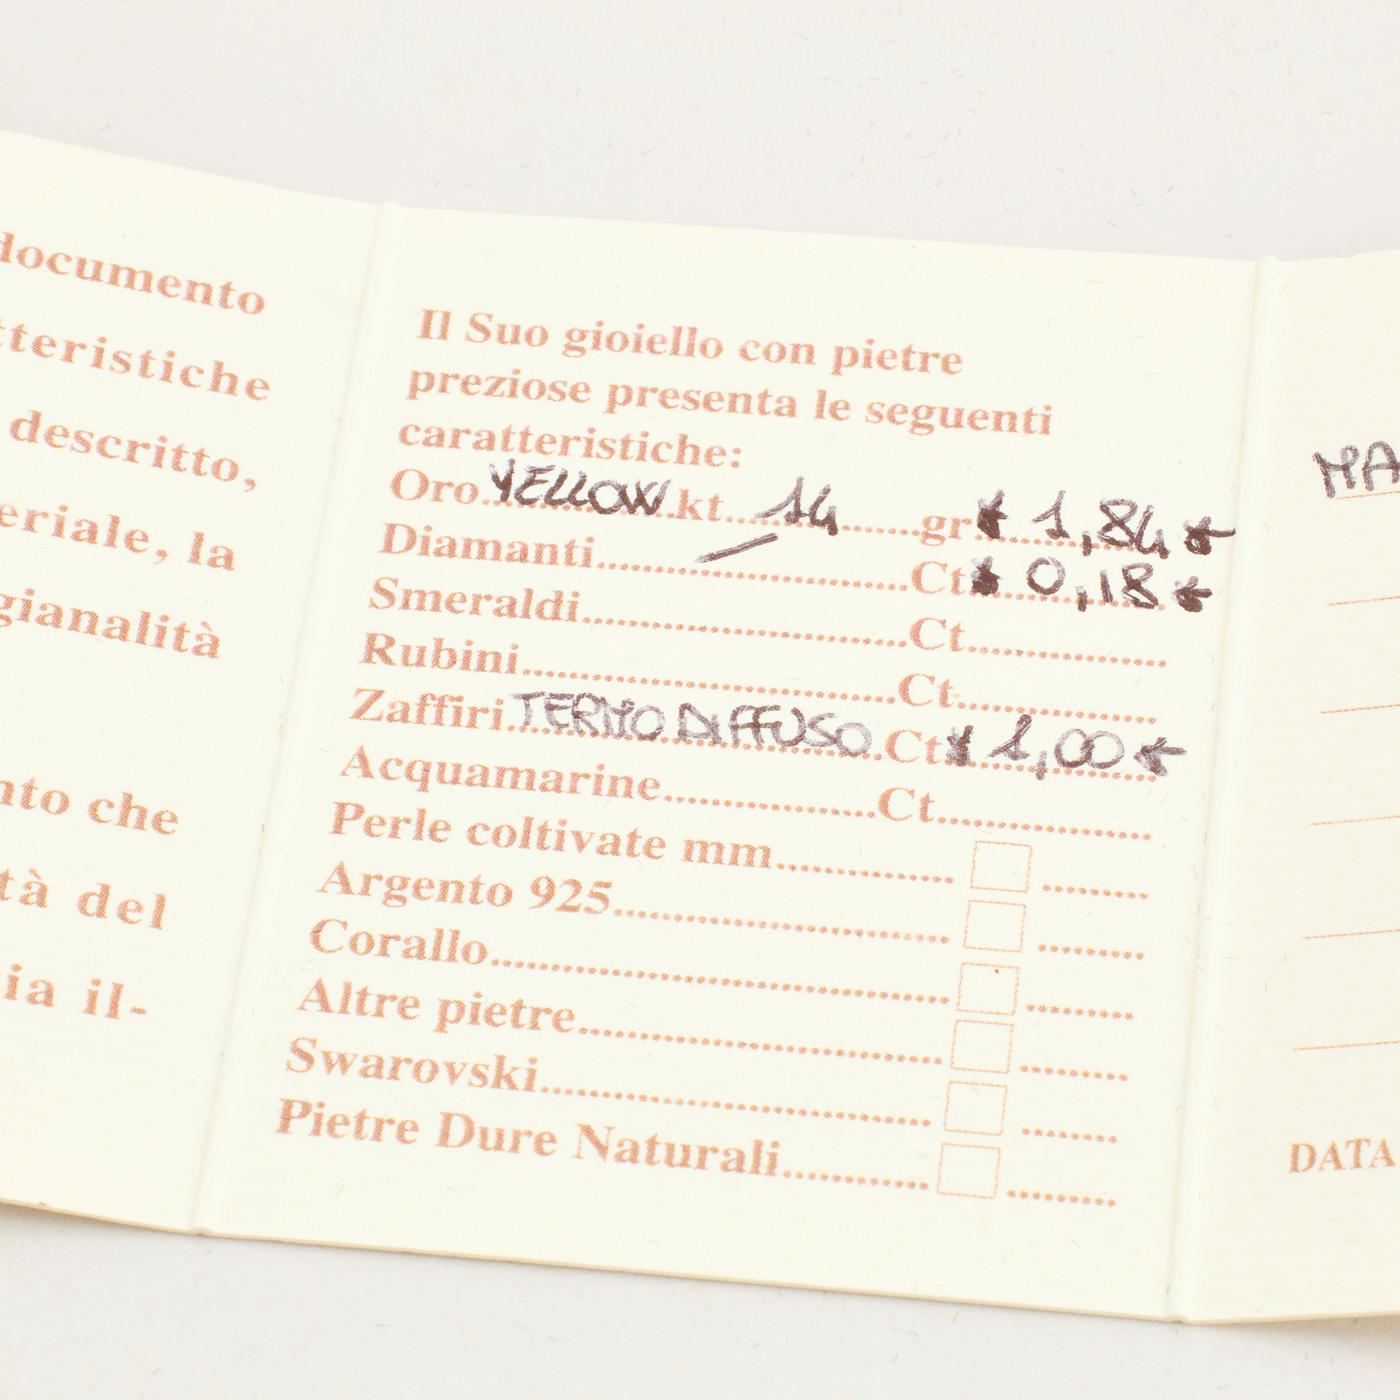 documento
tteristiche
descritto,
eriale, la
gianalità
nto che
tà del
ia il-
Il Suo gioiello con pietre
preziose presenta le seguenti
caratteristiche:
Oro YELLOW kt 14 gr * 1,84 *
Diamanti — Ct * 0,18 *
Smeraldi Ct
Rubini Ct
Zaffiri TERMO DIFFUSO Ct * 1,00 *
Acquamarine Ct
Perle coltivate mm
Argento 925
Corallo
Altre pietre
Swarovski
Pietre Dure Naturali
MA
DATA